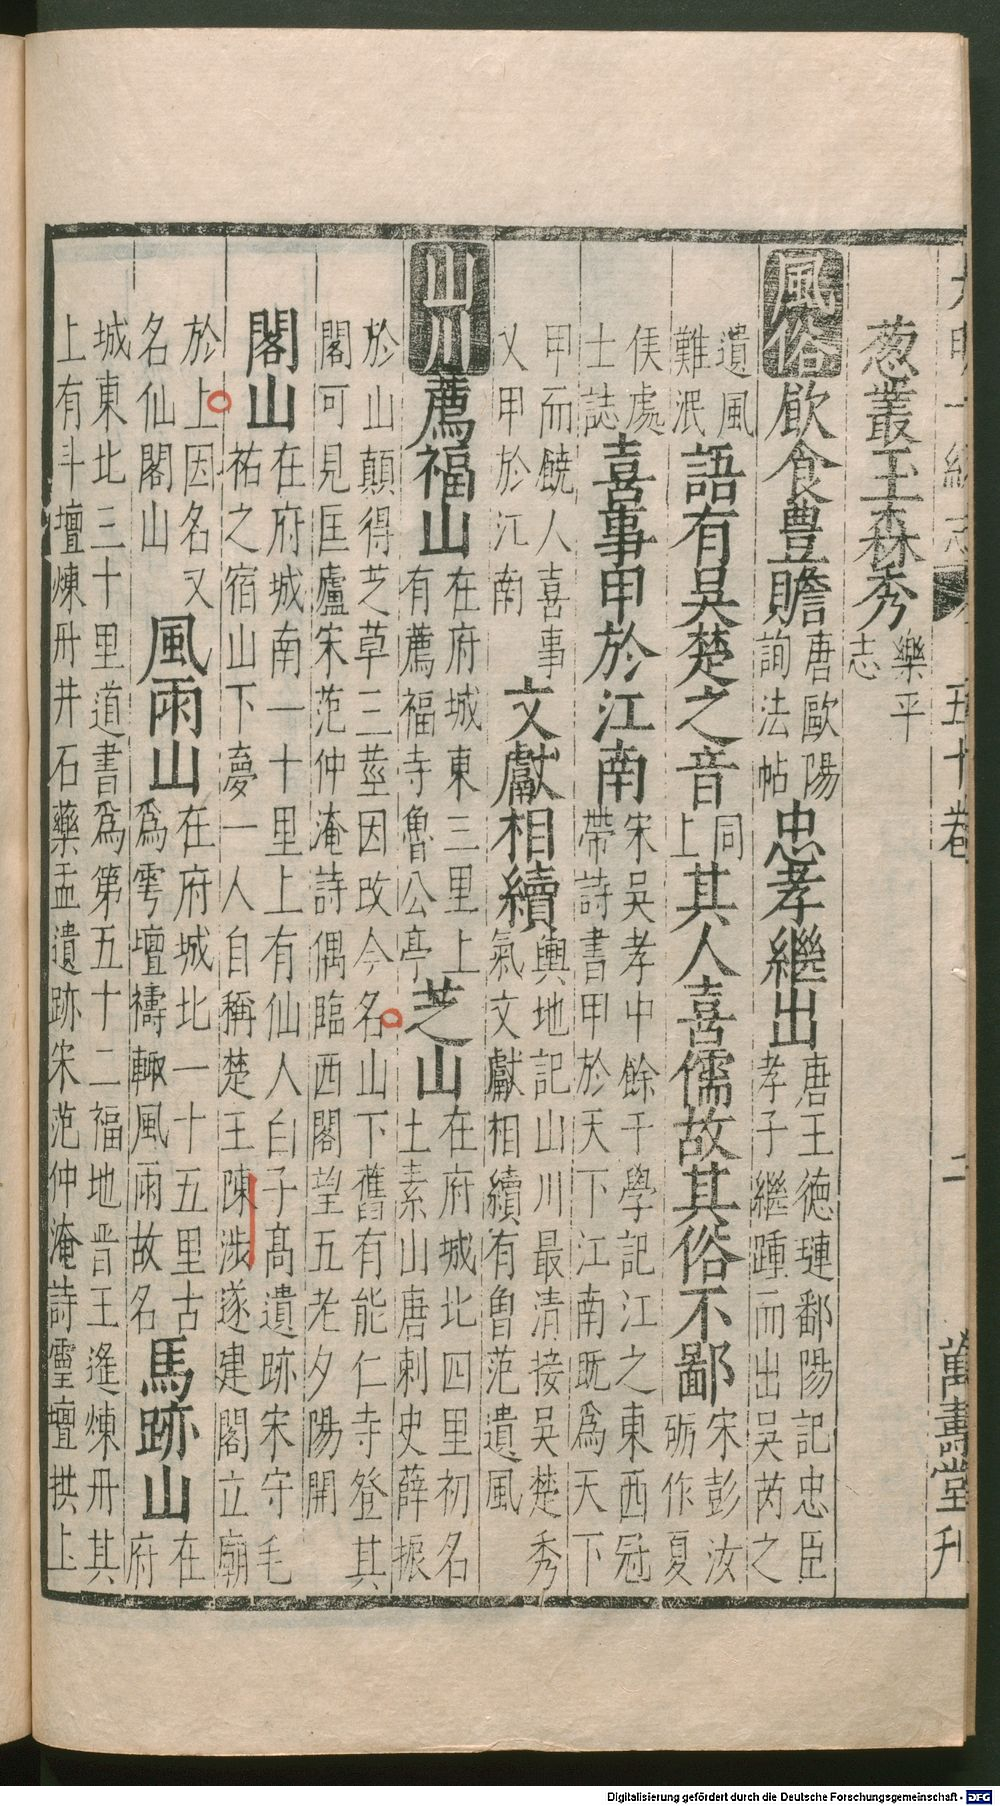 大明一統志 五十卷 二 萬壽堂刋
葱叢玉森秀樂平志
風俗飲食豊贍唐歐陽詢法帖忠孝繼出唐王徳璉鄱陽記忠臣孝子繼踵而出吳芮之
遺風難泯語有吳楚之音同上其人喜儒故其俗不鄙宋彭汝砺作夏
侯處士誌喜事甲於江南宋吳孝中餘干學記江之東西冠帶詩書甲於天下江南既爲天下
甲而饒人喜事又甲於江南文獻相續輿地記山川最清接吳楚秀氣文獻相續有魯范遺風
山川薦福山在府城東三里上有薦福寺魯公亭芝山在府城北四里初名土素山唐刺史薛振
於山顛得芝草三莖因改今名山下舊有能仁寺登其閣可見匡廬宋范仲淹詩偶臨西閣望五老夕陽開
閣山在府城南一十里上有仙人白子髙遺跡宋守毛祐之宿山下夣一人自稱楚王陳渉遂建閣立廟
於上因名又名仙閣山風雨山在府城北一十五里古爲雩壇禱輙風雨故名馬跡山在府
城東北三十里道書爲第五十二福地晋王遙煉丹其上有斗壇煉丹井石藥盂遺跡宋范仲淹詩靈壇拱上
Digitalisierung gefördert durch die Deutsche Forschungsgemeinschaft - DFG